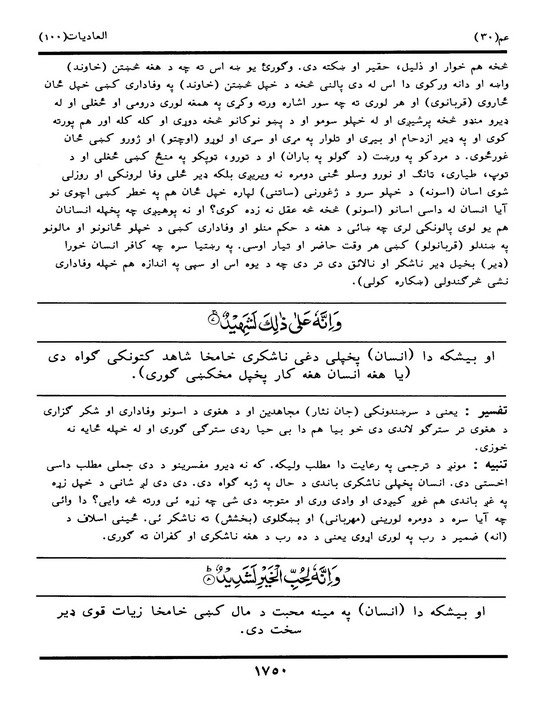 عم(۳۰)
العاديات(۱۰۰)
څخه هم خوار او ذليل، حقير او ښکته دی. وګورئ يو ښه اس ته چه د هغه څښتن (خاوند)
واښه او دانه ورکوی دا اس له دی پالنی څخه د خپل څښتن (خاوند) په وفاداری کښی خپل ځان
ځاروی (قربانوی) او هر لوری ته چه سور اشاره ورته وکړی په همغه لوری درومی او ځغلی او له
ډيرو منډو څخه پرشيږی او له خپلو سومو او د پښو نوکانو څخه دوړی او کله کله اور هم پورته
کوی او په ډير ازدحام او بيړی او تلوار په مړی او سړی او لوړو (اوچتو) او ژورو کښی ځان
غورځوی. د مردکو په ورښت (د ګولو په باران) او د تورو، توپکو په منځ کښی ځغلی او د
توپ، طياری، تانګ او نورو وسلو څخنی دومره نه ويريږی بلکه ډير ځلی وفا لرونکی او روزلی
شوی اسان (اسونه) د خپلو سرو د ژغورنی (ساتنی) لپاره خپل ځان هم په خطر کښی اچوی نو
آيا انسان له داسی اسانو (اسونو) څخه څه عقل نه زده کوی؟ او نه پوهيږی چه پخپله انسانان
هم يو لوی پالونکی لری چه ښائی د هغه د حکم منلو او وفاداری کښی د خپلو ځانونو او مالونو
په ښندلو (قربانولو) کښی هر وقت حاضر او تيار اوسی. په رښتيا سره چه کافر انسان خورا
(ډير) بخيل ډير ناشکر او نالائق دی تر دی چه د يوه اس او سپی په اندازه هم خپله وفاداری
نشی څرګندولی (ښکاره کولی).
وَاِنَّهٗ عَلٰى ذٰلِكَ لَشَهِيْدٌ ۚ ۷
او بيشکه دا (انسان) پخپلی دغی ناشکری خامخا شاهد کتونکی ګواه دی
(يا هغه انسان هغه کار پخپل مخکښی ګوری).
تفسير : يعنی د سرښندونکی (جان نثار) مجاهدين او د هغوی د اسونو وفاداری او شکر ګزاری
د هغوی تر سترګو لاندی دی خو بيا هم دا بی حيا ردی سترګی ګوری او له خپله ځايه نه
خوزی.
تنبيه : مونږ د ترجمی په رعايت دا مطلب وليکه. که نه ډيرو مفسرينو د دی جملی مطلب داسی
اخستی دی. انسان پخپلی ناشکری باندی د حال په ژبه ګواه دی. دی دی لږ شانی د خپل زړه
په غږ باندی هم غوږ کيږدی او وادی وری او متوجه دی شی چه زړه ئی ورته څه وايی؟ دا وائی
چه آيا سره د دومره لورينی (مهربانی) او بښګلوی (بخشش) ته ناشکر ئی. ځينی اسلاف د
(انه) ضمير د رب په لوری اړوی يعنی د ده رب د هغه ناشکری او کفران ته ګوری.
وَاِنَّهٗ لِحُبِّ الْخَيْرِ لَشَدِيْدٌ ؕ ۸
او بيشکه دا (انسان) په مينه محبت د مال کښی خامخا زيات قوی ډير
سخت دی.
۱۷۵۰